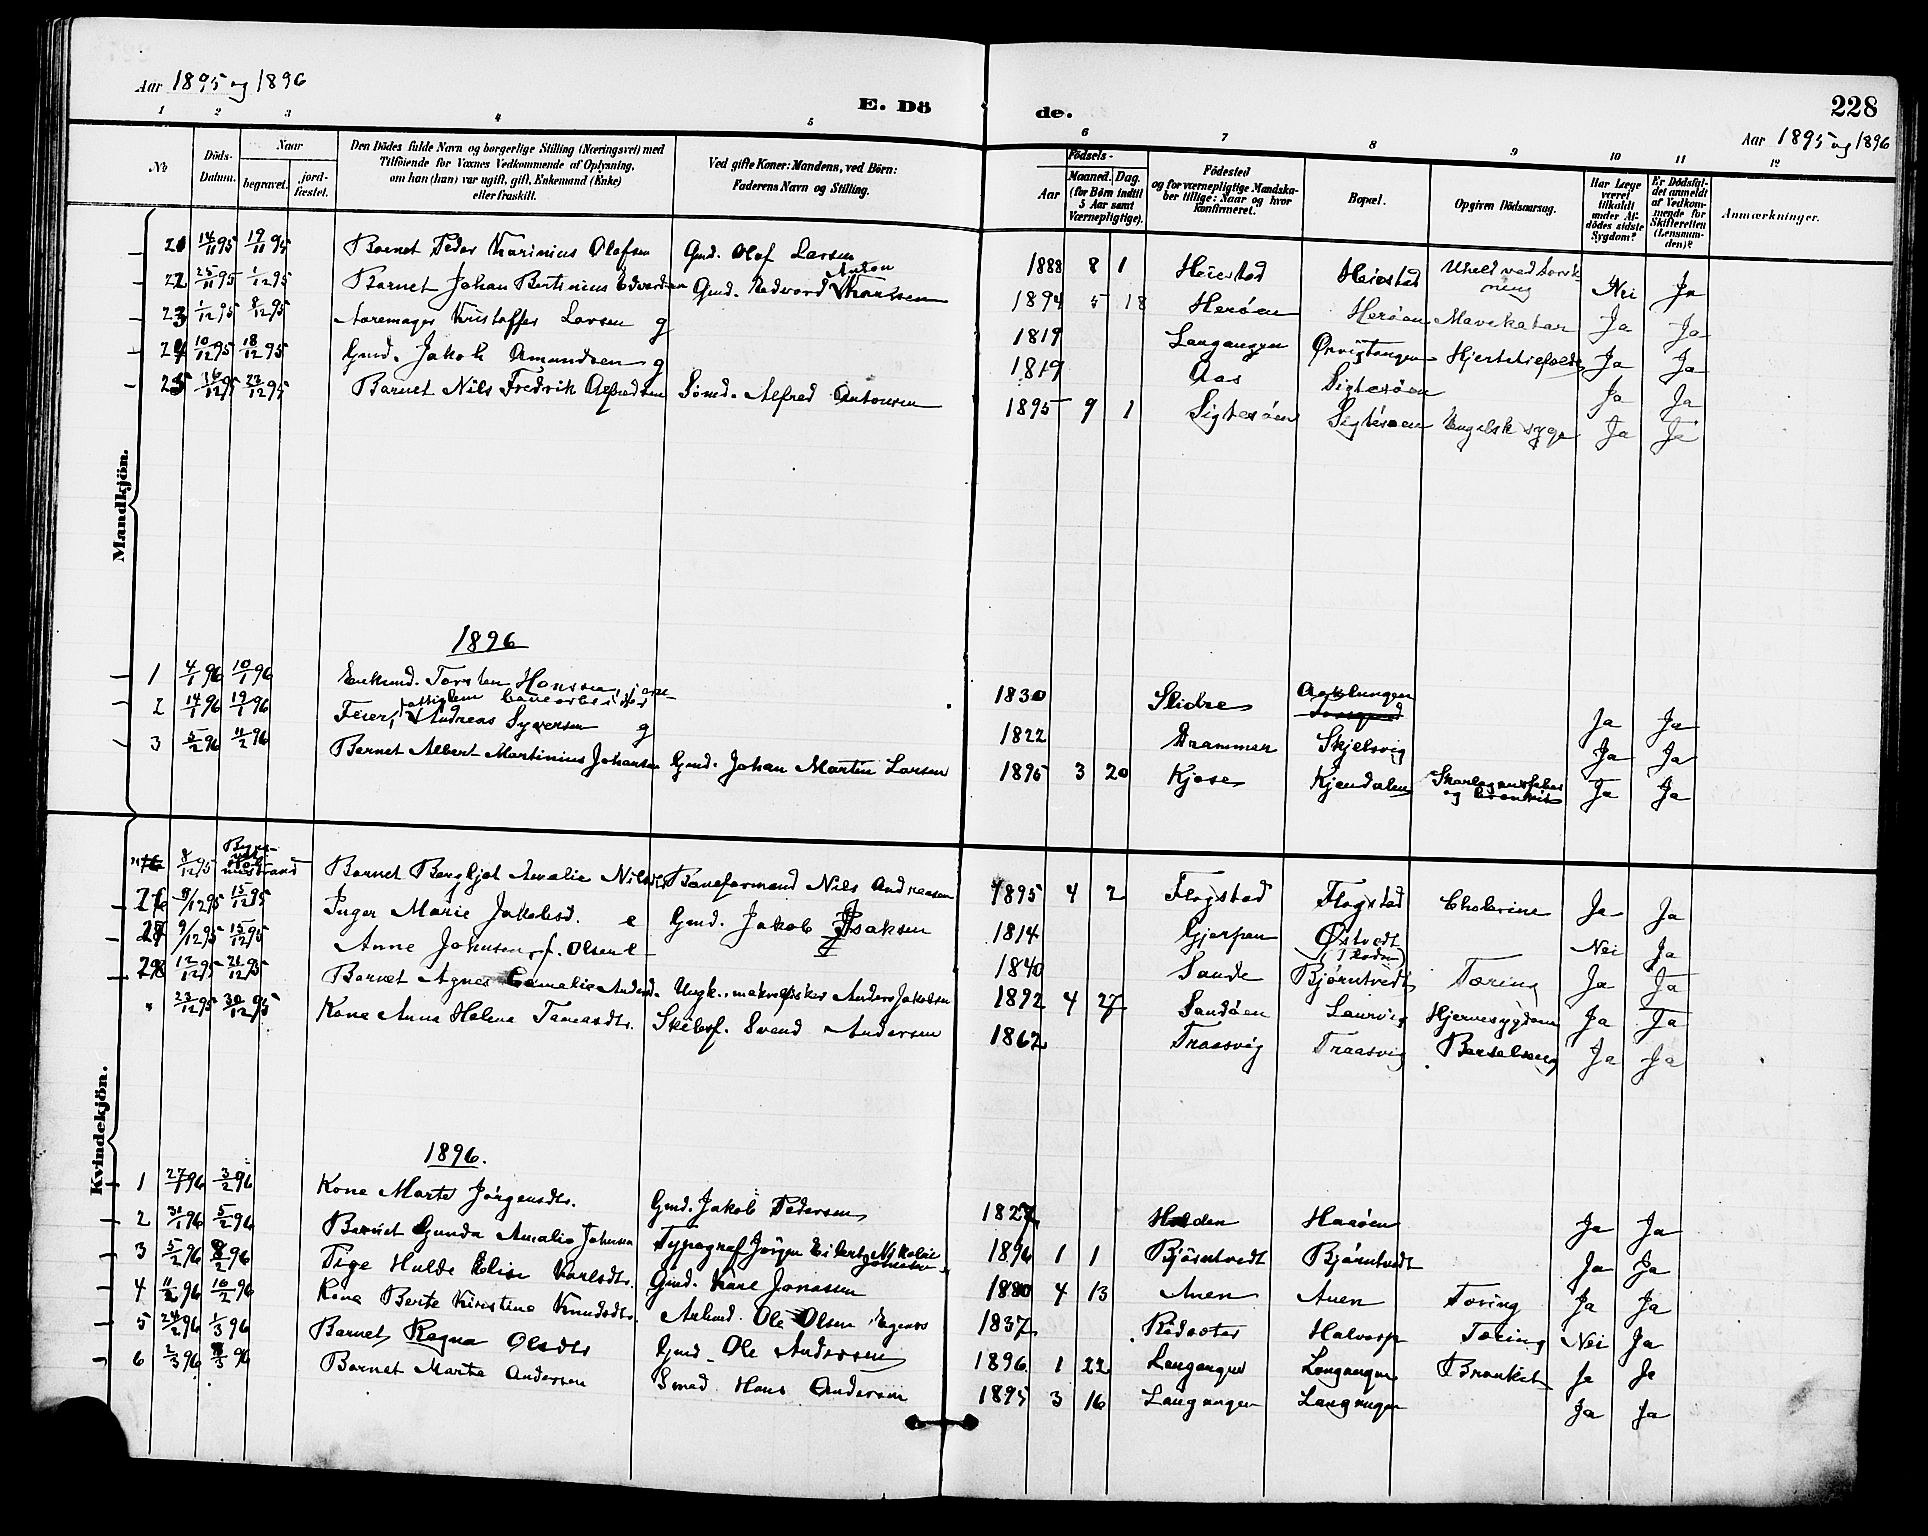 Aar 1895 og 1896
E. Dö de.
228
Aar 1895 og 1896
1 2 3 4 5 6 7 8 9 10 11 12
No
Döds-Datum.
Naar
begravet.
jord-fæstet.
Den Dödes fulde Navn og borgerlige Stilling (Næringsvei) med
Tilföiende for Voxnes Vedkommende af Oplysning,
om han (hun) var ugift, gift, Enkemand (Enke)
eller fraskilt.
Ved gifte Koner: Mandens, ved Börn:
Faderens Navn og Stilling.
Födsels-
Aar
Maaned. Dag.
(for Börn indtil
5 Aar samt
Værnepligtige).
Födested
og for værnepligtige Mandska-
ber tillige: Naar og hvor
konfirmeret.
Bopæl.
Opgiven Dödsaarsag.
Har Læge
været
tilkaldt
under Af-
dödes sidste
Sygdom?
Er Dödsfal-
det anmeldt
af Vedkom-
mende for
Skifteretten
(Lensman-
den)?
Anmærkninger.
Mandkjön.
21 14/11 95 19/11 95 Barnet Peder Marinius Olafsen Gmd. Olof Larsen 1888 8 1 Heiestad Heiestad Uheld ved Nei Ja
22 25/11 95 1/12 95 Barnet Johan Bertinius Edvardsen Gmd. Edvard Anton 1894 5 18 Herøen Herøen Mavekatar Ja Ja
23 1/12 95 8/12 95 Aaremager Kristoffer Larsen g 1819 Langangen Ørvigtangen Hjerte Ja Ja
24 10/12 95 18/12 95 Gmd. Jakob Amundsen g 1819 Aas Sigtesøen Ja Ja
25 16/12 95 23/12 95 Barnet Nils Fredrik Alfredsen Sömd. Alfred Antonsen 1895 9 1 Sigtesøen Sigtesøen Engelsk syge Ja Ja
1896
1 4/1 96 10/1 96 Enkemd. Torsten Hansen, 1830 Slidre Ja Ja
2 14/1 96 19/1 96 Feier, Andreas Syversen g 1822 Drammen Skjelsvig Ja Ja
3 5/2 96 11/2 96 Barnet Albert Martinius Johansen Gmd. Johan Martin Larsen 1895 3 20 Kjose Kjendalen Skarlagensfeber og bronkit Ja Ja
Kvindekjön.
8/12 95 Barnet Bergljot Amalie Nilsdtr Baneformand Nils Andreasen 1895 4 2 Flogstad Flogstad Cholerine Ja Ja
26 8/12 95 15/12 95 Inger Marie Jakobsd. e Gmd. Jakob Isaksen 1814 Gjerpen Østvedt Nei Ja
27 9/12 95 15/12 95 Anne Johnsen f. Olsen e 1840 Sande Bjørntvedt Tæring Ja Ja
28 12/12 95 21/12 95 Barnet Agnes Camelie Andersd. Ungk., makrelfisker Anders Jakobsen 1892 4 27 Sandöen Laurvig Hjernesygdom Ja Ja
" 23/12 95 30/12 95 Kone Anna Helena Tomasdtr. Skibsf. Svend Andersen 1862 Traasvig Traasvig Barselseng Ja Ja
1896.
1 27/1 96 3/2 96 Kone Marte Jörgensdtr. Gmd. Jakob Pedersen 1827 Halden Haaöen Ja Ja
2 31/1 96 5/2 96 Barnet Gunda Amalie Johnsen Typograf Jörgen Eilert Nikolai Johnsen 1896 1 1 Bjørntvedt Bjørntvedt Ja Ja
3 5/2 96 8/2 96 Pige Hulda Elise Karlsdtr. Gmd. Karl Jonassen 1880 4 13 Auen Auen Tæring Ja Ja
4 11/2 96 16/2 96 Kone Berte Kirstine Knudsdtr. Arbmd. Ole Olsen 1837 Halvarp Tæring Nei Ja
5 24/2 96 1/3 96 Barnet Ragna Olsdtr Gmd. Ole Andersen 1896 1 22 Langangen Langangen Bronkit Ja Ja
6 2/3 96 8/3 96 Barnet Marta Andersen Smed Hans Andersen 1895 3 16 Langangen Langangen Ja Ja